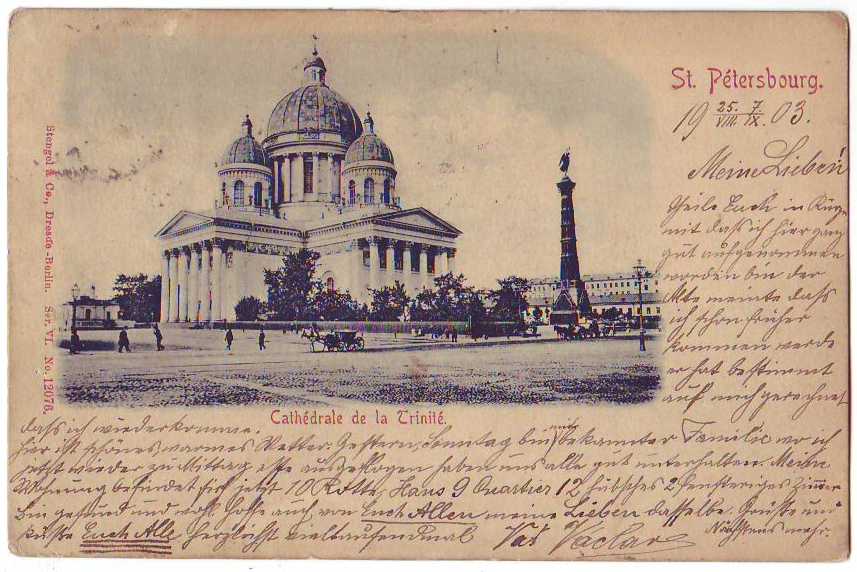 St. Pétersbourg.
19 25./VIII. 7./IX. 03.
Meine Lieben!
Theile Euch in Kürze
mit daß ich hier ganz
gut aufgenommen
worden bin der
Alte meinte daß
ich schon früher
kommen werde
er hat bestimmt
auf mich gerechnet
Cathédrale de la Trinité.
daß ich wiederkomme.
hier ist schönes warmes Wetter. Gestern, Sonntag bin bekannter Familie wo ich
jetzt wieder zu Mittag esse ausgeflogen haben uns alle gut unterhalten. Meine
Wohnung befindet sich jetzt 10 Rotte, Haus 9 Quartier 12, hübsches 2 fenstriges Zimmer
bin gesund und hoffe auch von Euch Allen meine Lieben dasselbe. Grüße und
küsse Euch Alle herzlichst vieltausendmal Váš Václav Nächstens mehr.
Stengel & Co., Dresde-Berlin. Ser. VI. No. 12076.